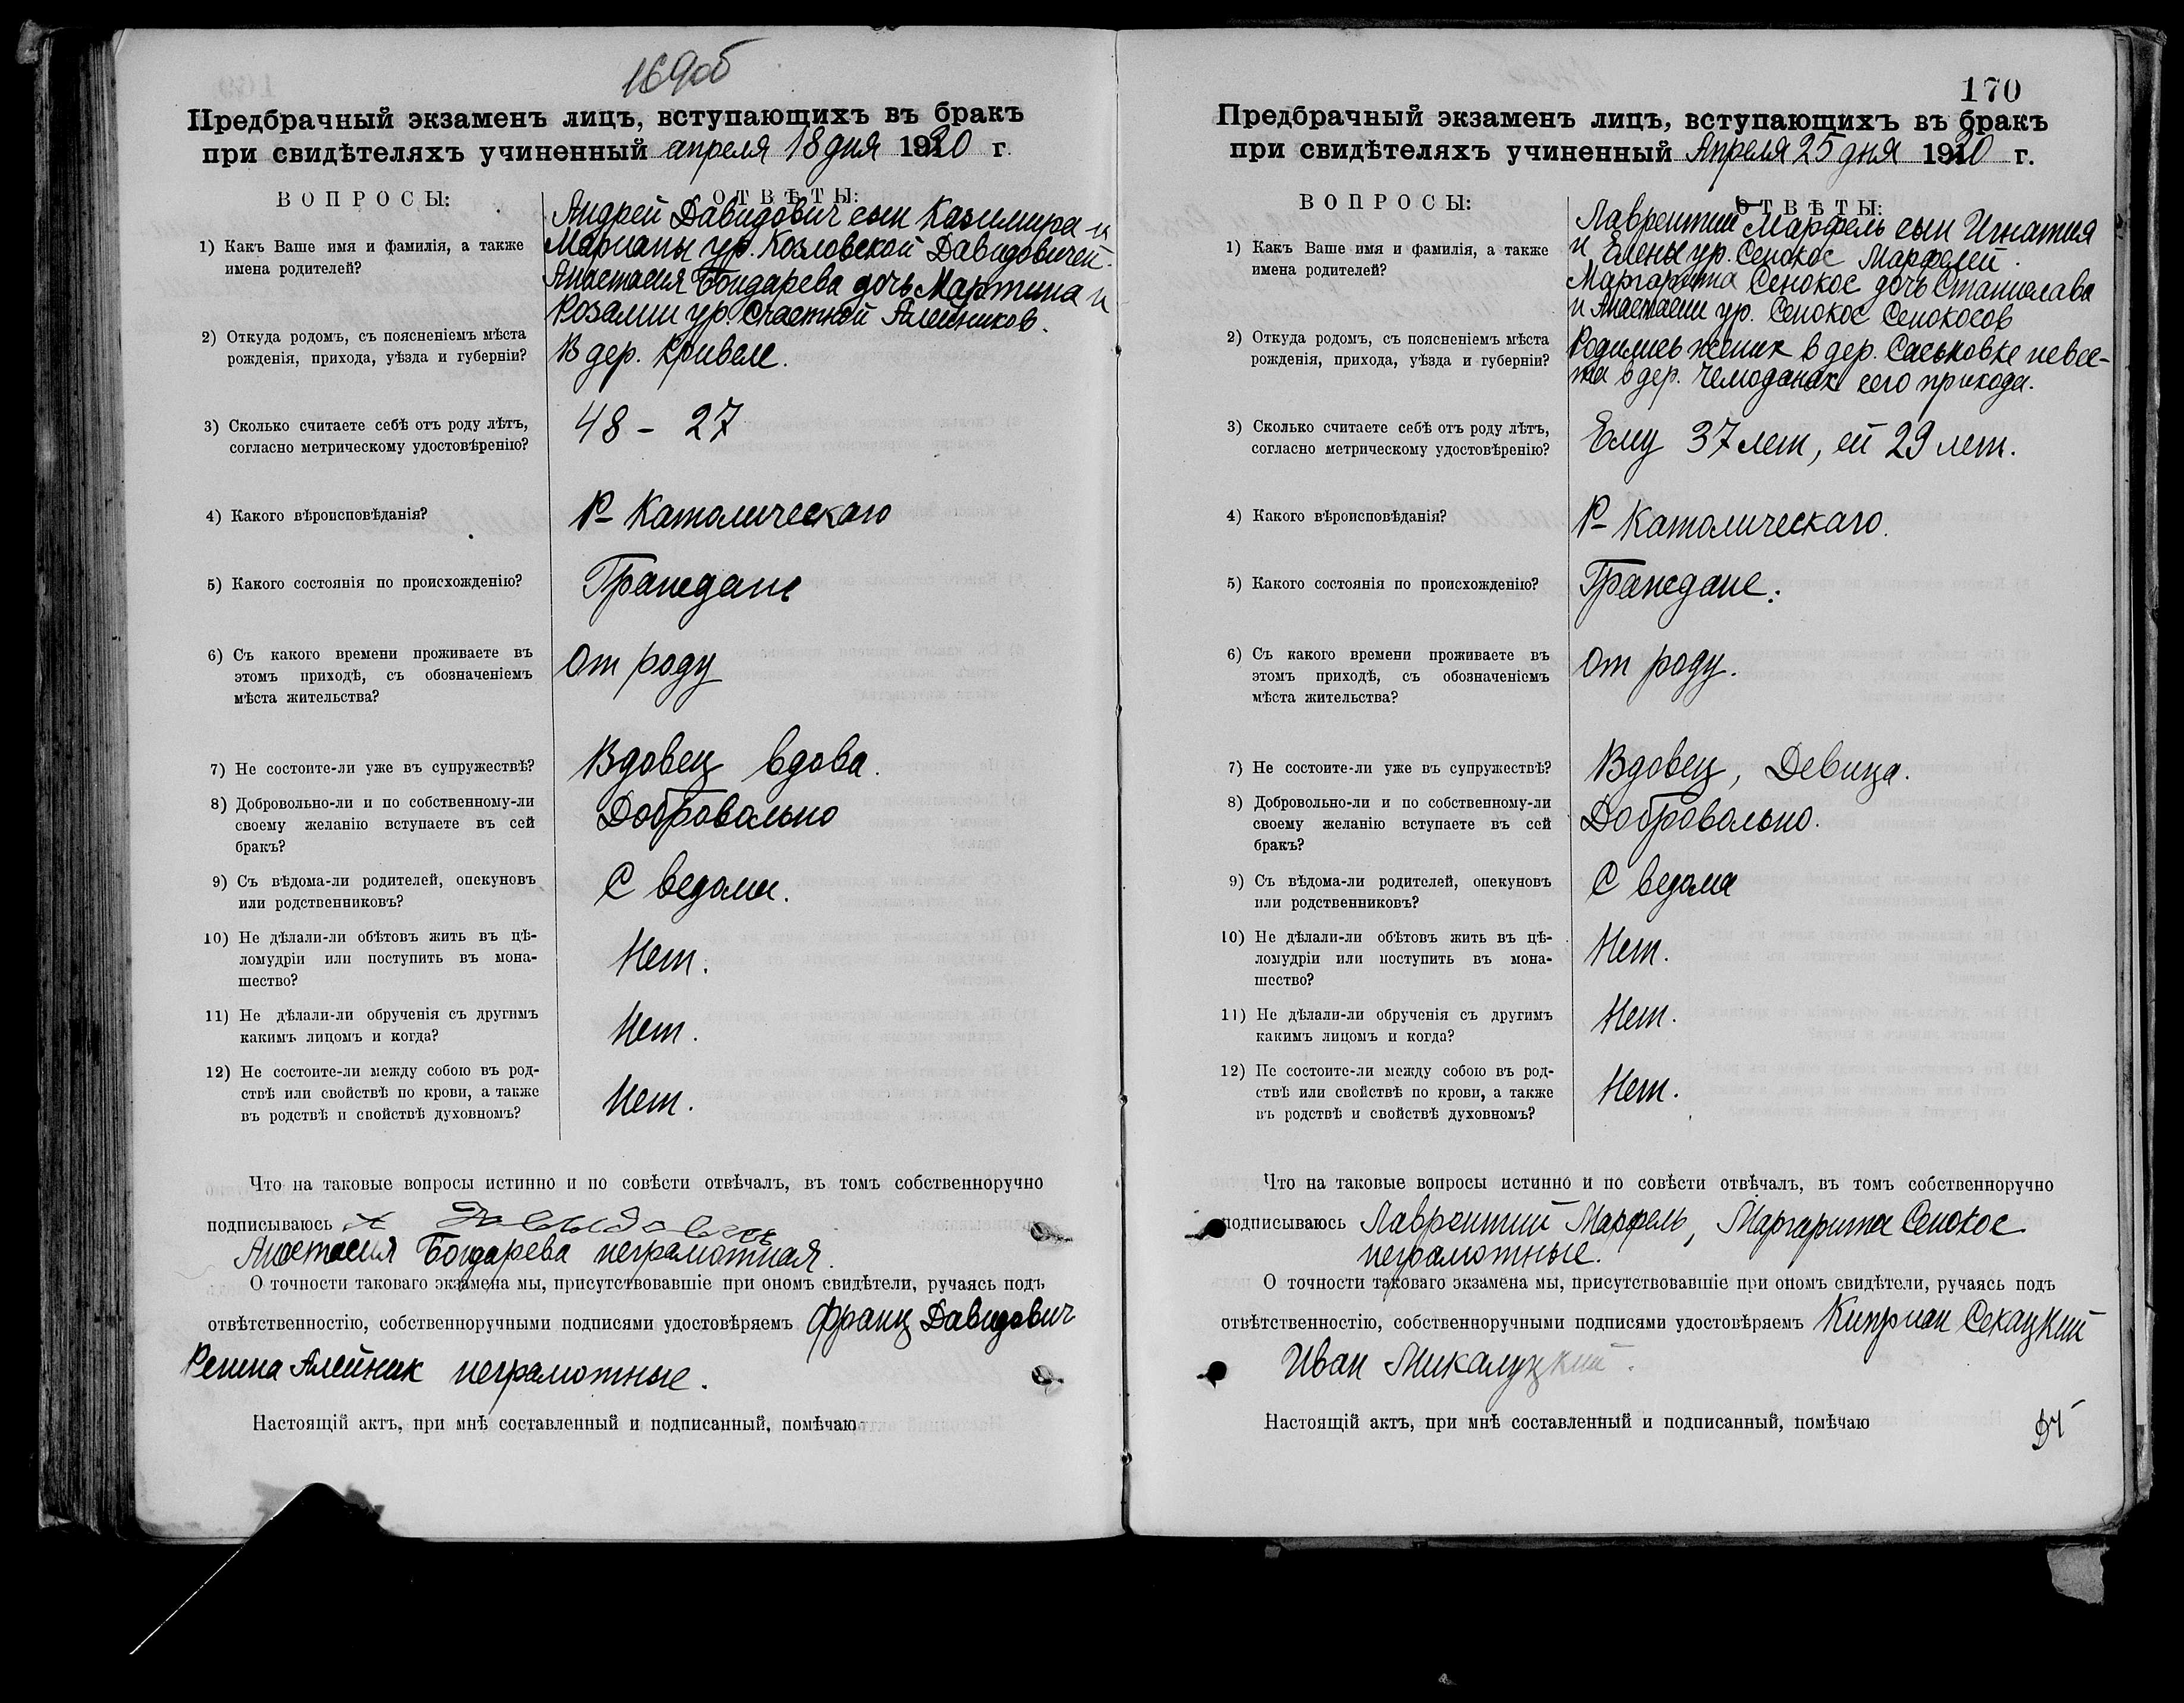 169об
Предбрачный экзаменъ лицъ, вступающихъ въ бракъ
при свидѣтеляхъ учиненный апреля 18 дня 1920 г.
ВОПРОСЫ:
ОТВѢТЫ:
1) Какъ Ваше имя и фамилія, а также
имена родителей?
Андрей Давидович сын Казимира и
Марианы ур. Козловской Давидовичей.
Анастасия Бондарева дочь Мартина и
Розалии ур. Счастной Алейников.
2) Откуда родомъ, съ поясненіемъ мѣста
рожденія, прихода, уѣзда и губерніи?
В дер. Кривле.
3) Сколько считаете себѣ отъ роду лѣтъ,
согласно метрическому удостовѣренію?
48 – 27
4) Какого вѣроисповѣданія?
Р– Католическаго
5) Какого состоянія по происхожденію?
Граждане
6) Съ какого времени проживаете въ
этомъ приходѣ, съ обозначеніемъ
мѣста жительства?
От роду
7) Не состоите-ли уже въ супружествѣ?
Вдовец вдова.
8) Добровольно-ли и по собственному-ли
своему желанію вступаете въ сей
бракъ?
Добровольно
9) Съ вѣдома-ли родителей, опекуновъ
или родственниковъ?
С ведома.
10) Не дѣлали-ли обѣтовъ жить въ цѣ-
ломудріи или поступить въ мона-
шество?
Нет.
11) Не дѣлали-ли обрученія съ другимъ
какимъ лицомъ и когда?
Нет.
12) Не состоите-ли между собою въ род-
ствѣ или свойствѣ по крови, а также
въ родствѣ и свойствѣ духовномъ?
Нет.
Что на таковые вопросы истинно и по совѣсти отвѣчалъ, въ томъ собственноручно
подписываюсь
Анастасия Бондарева неграмотная.
О точности таковаго экзамена мы, присутствовавшіе при ономъ свидѣтели, ручаясь подъ
отвѣтственностію, собственноручными подписями удостовѣряемъ Франц Давидович
Регина Алейник неграмотные.
Настоящій актъ, при мнѣ составленный и подписанный, помѣчаю
170
Предбрачный экзаменъ лицъ, вступающихъ въ бракъ
при свидѣтеляхъ учиненный Апреля 25 дня 1920 г.
ВОПРОСЫ:
ОТВѢТЫ:
1) Какъ Ваше имя и фамилія, а также
имена родителей?
Лаврентий Марфель сын Игнатия
и Елены ур. Сенокос Марфелей.
Маргарита Сенокос дочь Станислава
и Анастасии ур. Сенокос Сенокосов
2) Откуда родомъ, съ поясненіемъ мѣста
рожденія, прихода, уѣзда и губерніи?
Родились жених в дер. Саськовке невес-
та в дер. Чемоданах сего прихода.
3) Сколько считаете себѣ отъ роду лѣтъ,
согласно метрическому удостовѣренію?
Ему 37 лет, ей 29 лет.
4) Какого вѣроисповѣданія?
Р– Католическаго.
5) Какого состоянія по происхожденію?
Граждане.
6) Съ какого времени проживаете въ
этомъ приходѣ, съ обозначеніемъ
мѣста жительства?
От роду.
7) Не состоите-ли уже въ супружествѣ?
Вдовец, Девица.
8) Добровольно-ли и по собственному-ли
своему желанію вступаете въ сей
бракъ?
Добровольно.
9) Съ вѣдома-ли родителей, опекуновъ
или родственниковъ?
С ведома
10) Не дѣлали-ли обѣтовъ жить въ цѣ-
ломудріи или поступить въ мона-
шество?
Нет.
11) Не дѣлали-ли обрученія съ другимъ
какимъ лицомъ и когда?
Нет.
12) Не состоите-ли между собою въ род-
ствѣ или свойствѣ по крови, а также
въ родствѣ и свойствѣ духовномъ?
Нет.
Что на таковые вопросы истинно и по совѣсти отвѣчалъ, въ томъ собственноручно
подписываюсь Лаврентий Марфель, Маргарита Сенокос
неграмотные.
О точности таковаго экзамена мы, присутствовавшіе при ономъ свидѣтели, ручаясь подъ
отвѣтственностію, собственноручными подписями удостовѣряемъ Киприан Секацкий
Иван Микалуцкий.
Настоящій актъ, при мнѣ составленный и подписанный, помѣчаю